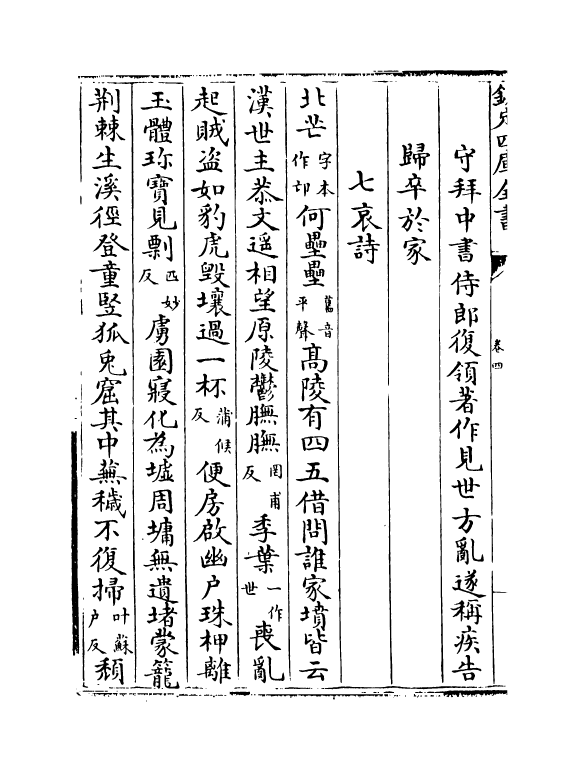 欽定四庫全書
卷四
守拜中書侍郎復領著作見世方亂遂稱疾告
歸卒於家
七哀詩
北芒字本作邙何壘壘舊音平聲高陵有四五借問誰家墳皆云
漢世主恭文遥相望原陵鬱膴膴罔甫反季葉一作世喪亂
起賊盜如豺虎毀壤過一抔蒲候反便房啟幽户珠柙離
玉體珎寶見剽匹妙反虜園寢化為墟周墉無遺堵蒙籠
荆棘生溪徑登童豎狐兎窟其中蕪穢不復掃叶蘇户反頽